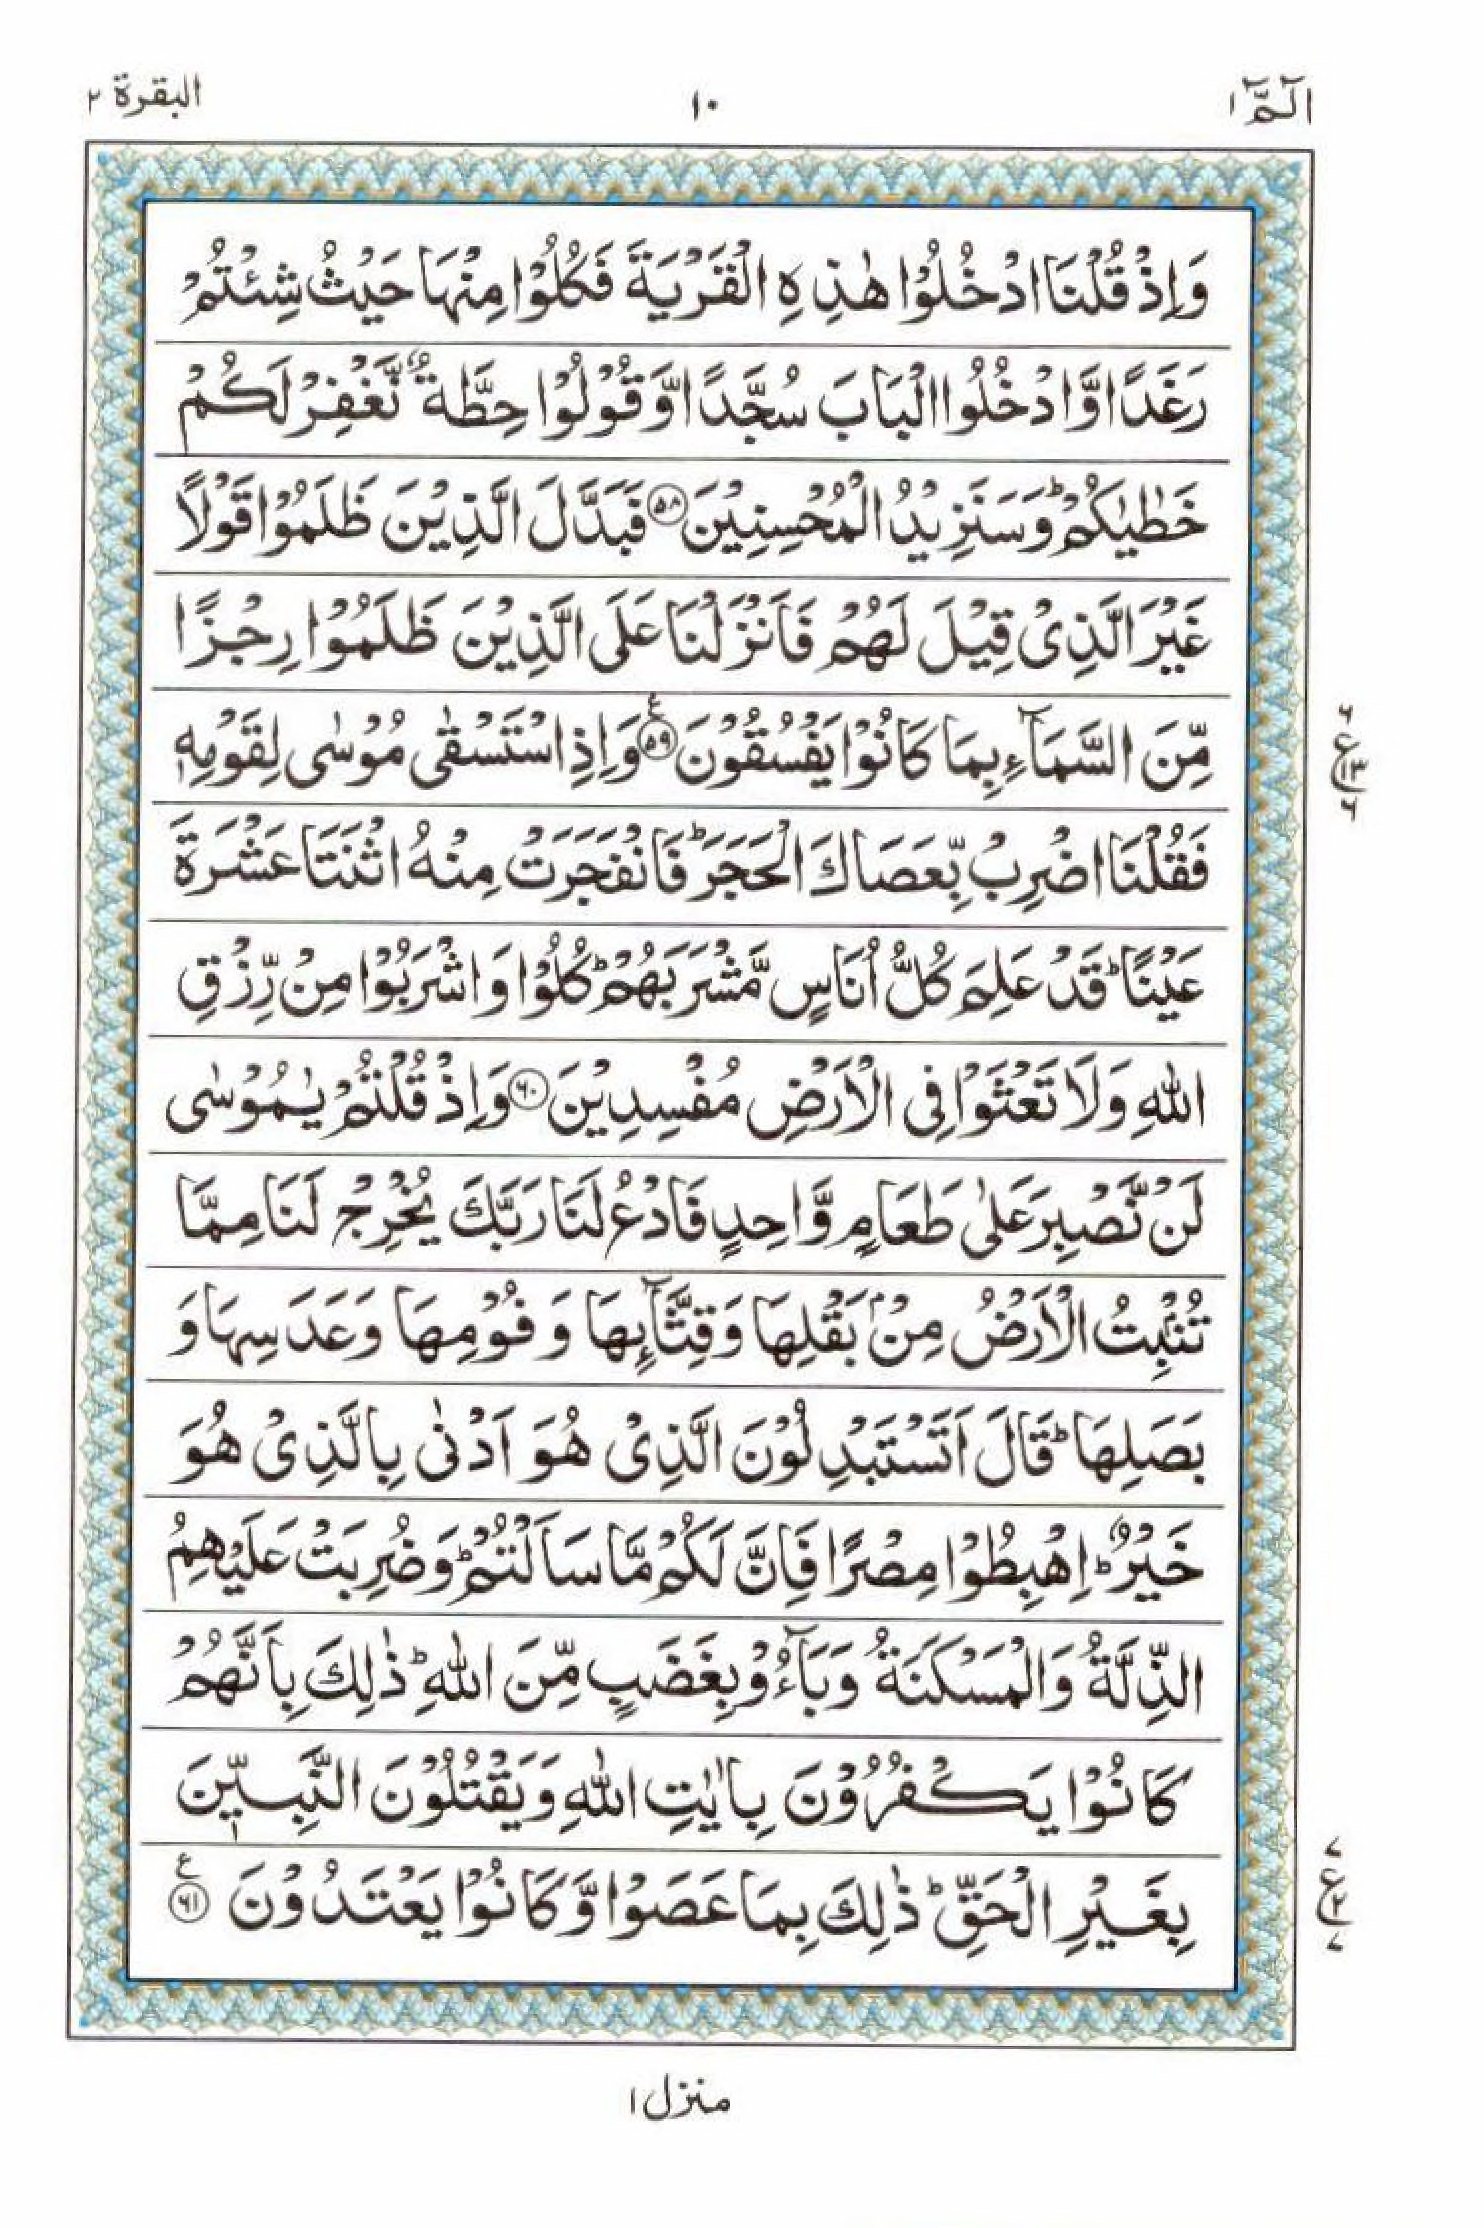 الٓمّٓ ١
١٠
البقرة ٢
وَاِذْ قُلْنَا ادْخُلُوْا هٰذِهِ الْقَرْيَةَ فَكُلُوْا مِنْهَا حَيْثُ شِئْتُمْ
رَغَدًا وَّادْخُلُوا الْبَابَ سُجَّدًا وَّقُوْلُوْا حِطَّةٌ نَّغْفِرْ لَكُمْ
خَطٰيٰكُمْ ؕ وَسَنَزِيْدُ الْمُحْسِنِيْنَ ﴿۵۸﴾ فَبَدَّلَ الَّذِيْنَ ظَلَمُوْا قَوْلًا
غَيْرَ الَّذِىْ قِيْلَ لَهُمْ فَاَنْزَلْنَا عَلَى الَّذِيْنَ ظَلَمُوْا رِجْزًا
مِّنَ السَّمَآءِ بِمَا كَانُوْا يَفْسُقُوْنَ ﴿۵۹﴾ ع وَاِذِ اسْتَسْقٰى مُوْسٰى لِقَوْمِهٖ
٦ ع ١٣ ٦
فَقُلْنَا اضْرِبْ بِّعَصَاكَ الْحَجَرَ ؕ فَانْفَجَرَتْ مِنْهُ اثْنَتَا عَشْرَةَ
عَيْنًا ؕ قَدْ عَلِمَ كُلُّ اُنَاسٍ مَّشْرَبَهُمْ ؕ كُلُوْا وَاشْرَبُوْا مِنْ رِّزْقِ
اللّٰهِ وَلَا تَعْثَوْا فِى الْاَرْضِ مُفْسِدِيْنَ ﴿۶۰﴾ وَاِذْ قُلْتُمْ يٰمُوْسٰى
لَنْ نَّصْبِرَ عَلٰى طَعَامٍ وَّاحِدٍ فَادْعُ لَنَا رَبَّكَ يُخْرِجْ لَنَا مِمَّا
تُنْۢبِتُ الْاَرْضُ مِنْۢ بَقْلِهَا وَقِثَّآئِهَا وَفُوْمِهَا وَعَدَسِهَا وَ
بَصَلِهَا ؕ قَالَ اَتَسْتَبْدِلُوْنَ الَّذِىْ هُوَ اَدْنٰى بِالَّذِىْ هُوَ
خَيْرٌ ؕ اِهْبِطُوْا مِصْرًا فَاِنَّ لَكُمْ مَّا سَاَلْتُمْ ؕ وَضُرِبَتْ عَلَيْهِمُ
الذِّلَّةُ وَالْمَسْكَنَةُ وَبَآءُوْ بِغَضَبٍ مِّنَ اللّٰهِ ؕ ذٰلِكَ بِاَنَّهُمْ
كَانُوْا يَكْفُرُوْنَ بِاٰيٰتِ اللّٰهِ وَيَقْتُلُوْنَ النَّبِيّٖنَ
بِغَيْرِ الْحَقِّ ؕ ذٰلِكَ بِمَا عَصَوْا وَّكَانُوْا يَعْتَدُوْنَ ﴿۶۱﴾ ع
٧ ع ٢ ٧
منزل ١